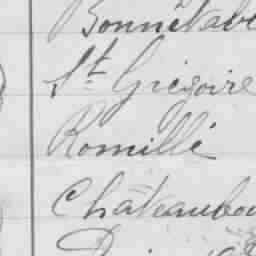 Bonnétabl
St Grégoire
Romillé
Chateaubou